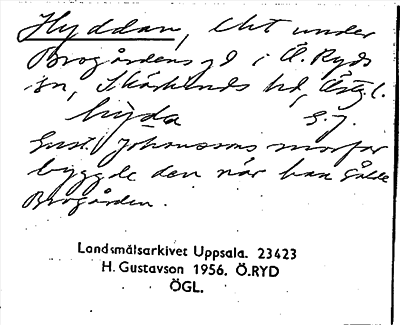 Hyddan, lht under
Brogårdens gd i Ö. Ryds
sn, Skärkinds hd, Östg. l.
hyda G. J.
Gust. Johanssons morfar
byggde den när han sålde
Brogården.
Landsmålsarkivet Uppsala. 23423
H. Gustavson 1956. Ö.RYD
ÖGL.